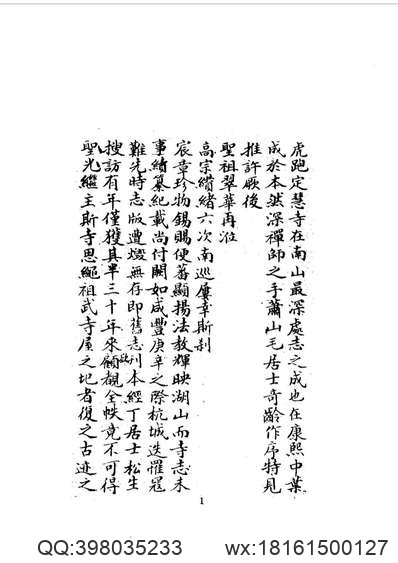 虎跑定慧寺在南山最深處志之成也在康熙中葉
成於本然深禪師之手蕭山毛居士奇齡作序特見
推許厥後
聖祖翠華再涖
高宗纘緒六次南巡屢幸斯剎
宸章珍物錫賜便蕃顯揚法教輝映湖山而寺志未
事續纂紀載尚付闕如咸豐庚辛之際杭城迭罹寇
難先時志版遭燬無存即舊志刊本經丁居士松生
搜訪有年僅獲其半三十年來欲顧觀全帙竟不可得
聖光繼主斯寺思繩祖武寺屋之圮者復之古迹之
1
QQ:398035233 wx:18161500127